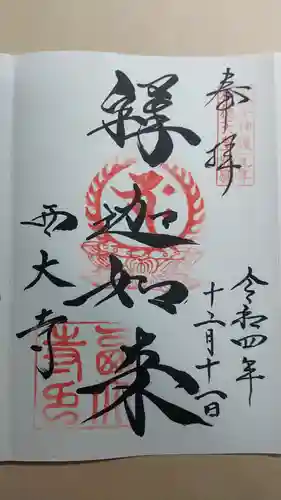 奉拝
令和四年
十二月十一日
釋迦如来
西大寺